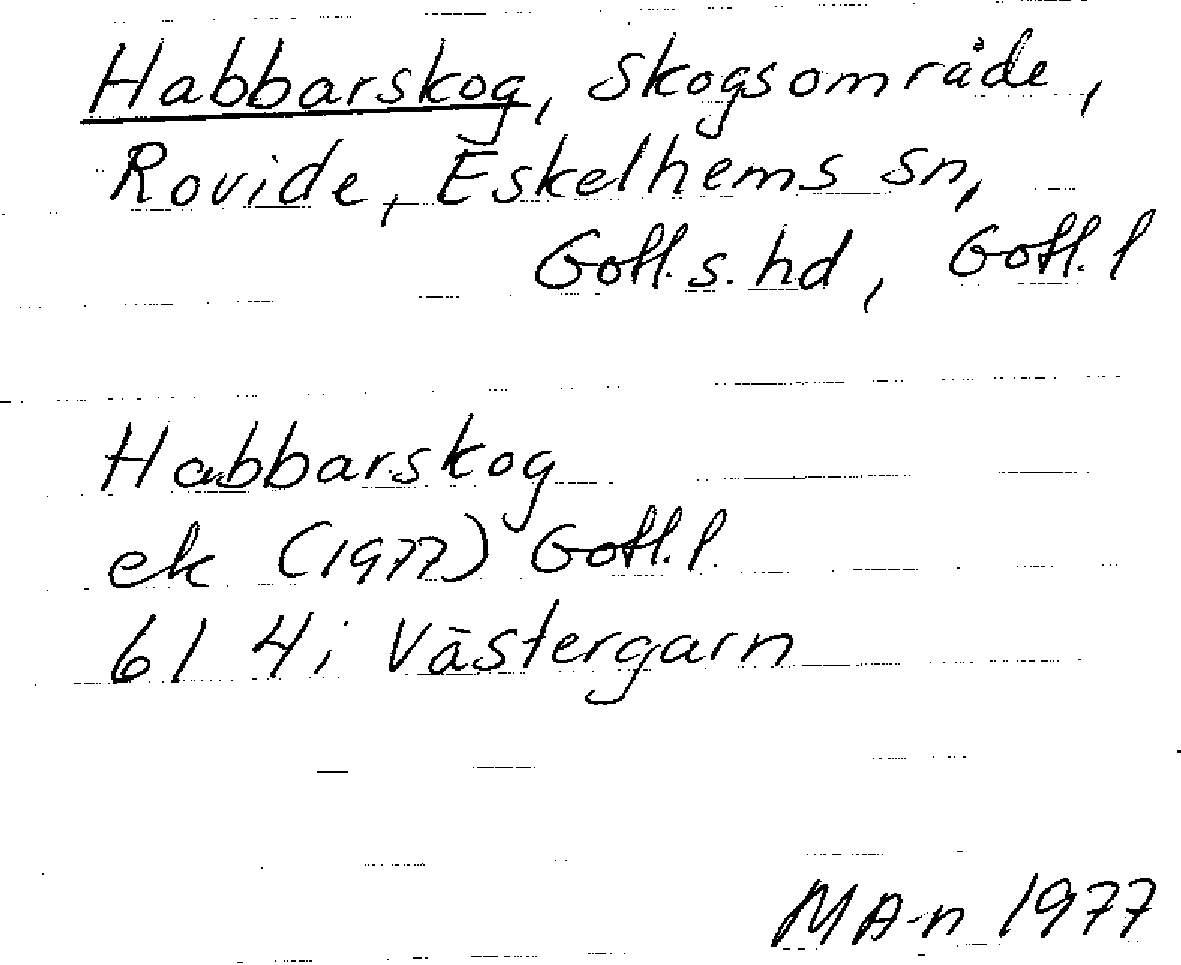 Habbarskog, Skogsområde,
Rovide, Eskelhems sn,
Gotl. s. hd, Gotl. l
Habbarskog
ek (1977) Gotl. l.
61 4i Västergarn
MA-n 1977